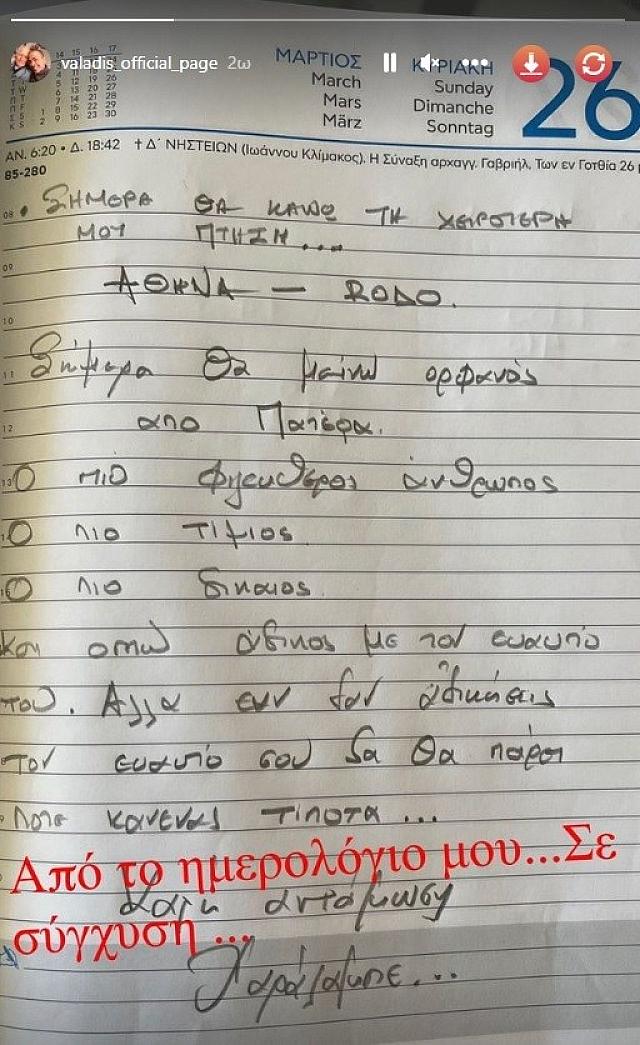 valadis_official_page 2ω
14 15 16 17
ΜΑΡΤΙΟΣ ΚΥΡΙΑΚΗ
March Sunday
Mars Dimanche
März Sonntag
26
ΑΝ. 6:20 • Δ. 18:42 ✝ Δ΄ ΝΗΣΤΕΙΩΝ (Ιωάννου Κλίμακος). Η Σύναξη αρχαγγ. Γαβριήλ, Των εν Γοτθία 26 μ
85-280
08 • ΣΗΜΕΡΑ ΘΑ ΚΑΝΩ ΤΗ ΧΕΙΡΟΤΕΡΗ
ΜΟΥ ΠΤΗΣΗ...
09
ΑΘΗΝΑ — RODO.
10
11 Σήμερα θα μείνω ορφανός
12 απο Πατέρα.
13 Ο πιο ελευθερος άνθρωπος
Ο πιο τίμιος
Ο πιο δικαιος
και άδικος με τον ευαυτο
του. Αλλα εαν δεν αδικήσεις
τον ευαυτό σου δα θα παρει
ποτε κανενας τιποτα...
Από το ημερολόγιο μου...Σε
Καλη ανταμωση
σύγχυση ...
Χαράλαμπε...